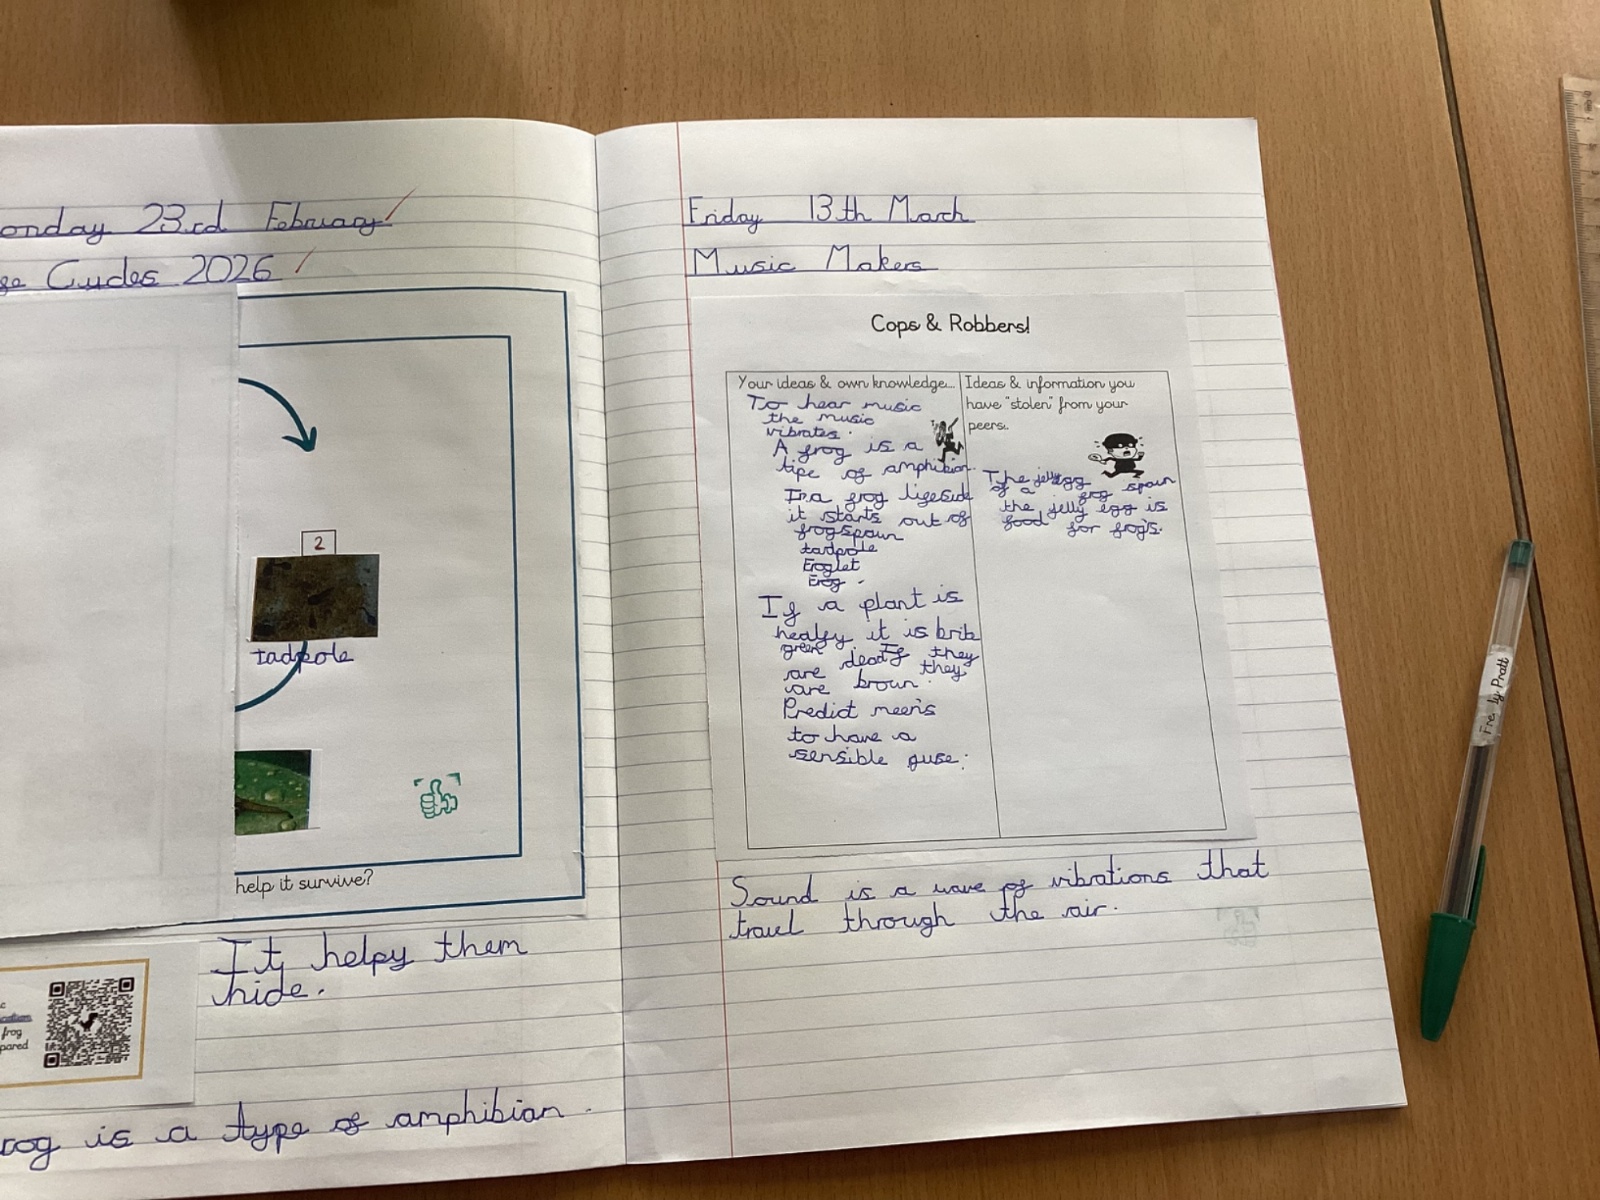 onday 23rd February
Cycles 2026
2
tadpole
help it survive?
It helps them
hide.
frog
pared
rog is a type of amphibian.
Friday 13th March
Music Makers
Cops & Robbers!
Your ideas & own knowledge...
To hear music
the music
vibrates.
A frog is a
tipe of amphibian.
In a frog lifeside
it starts out of
frogspawn
tadpole
Froglet
Frog.
If a plant is
healfy it is brit
green If they
are dead they
are broun.
Predict meens
to have a
sensible guse.
Ideas & information you
have "stolen" from your
peers..
The jelly egg
of a frog spawn
the jelly egg is
food for frogs.
Sound is a wave of vibrations that
travel through the air.
Pratt